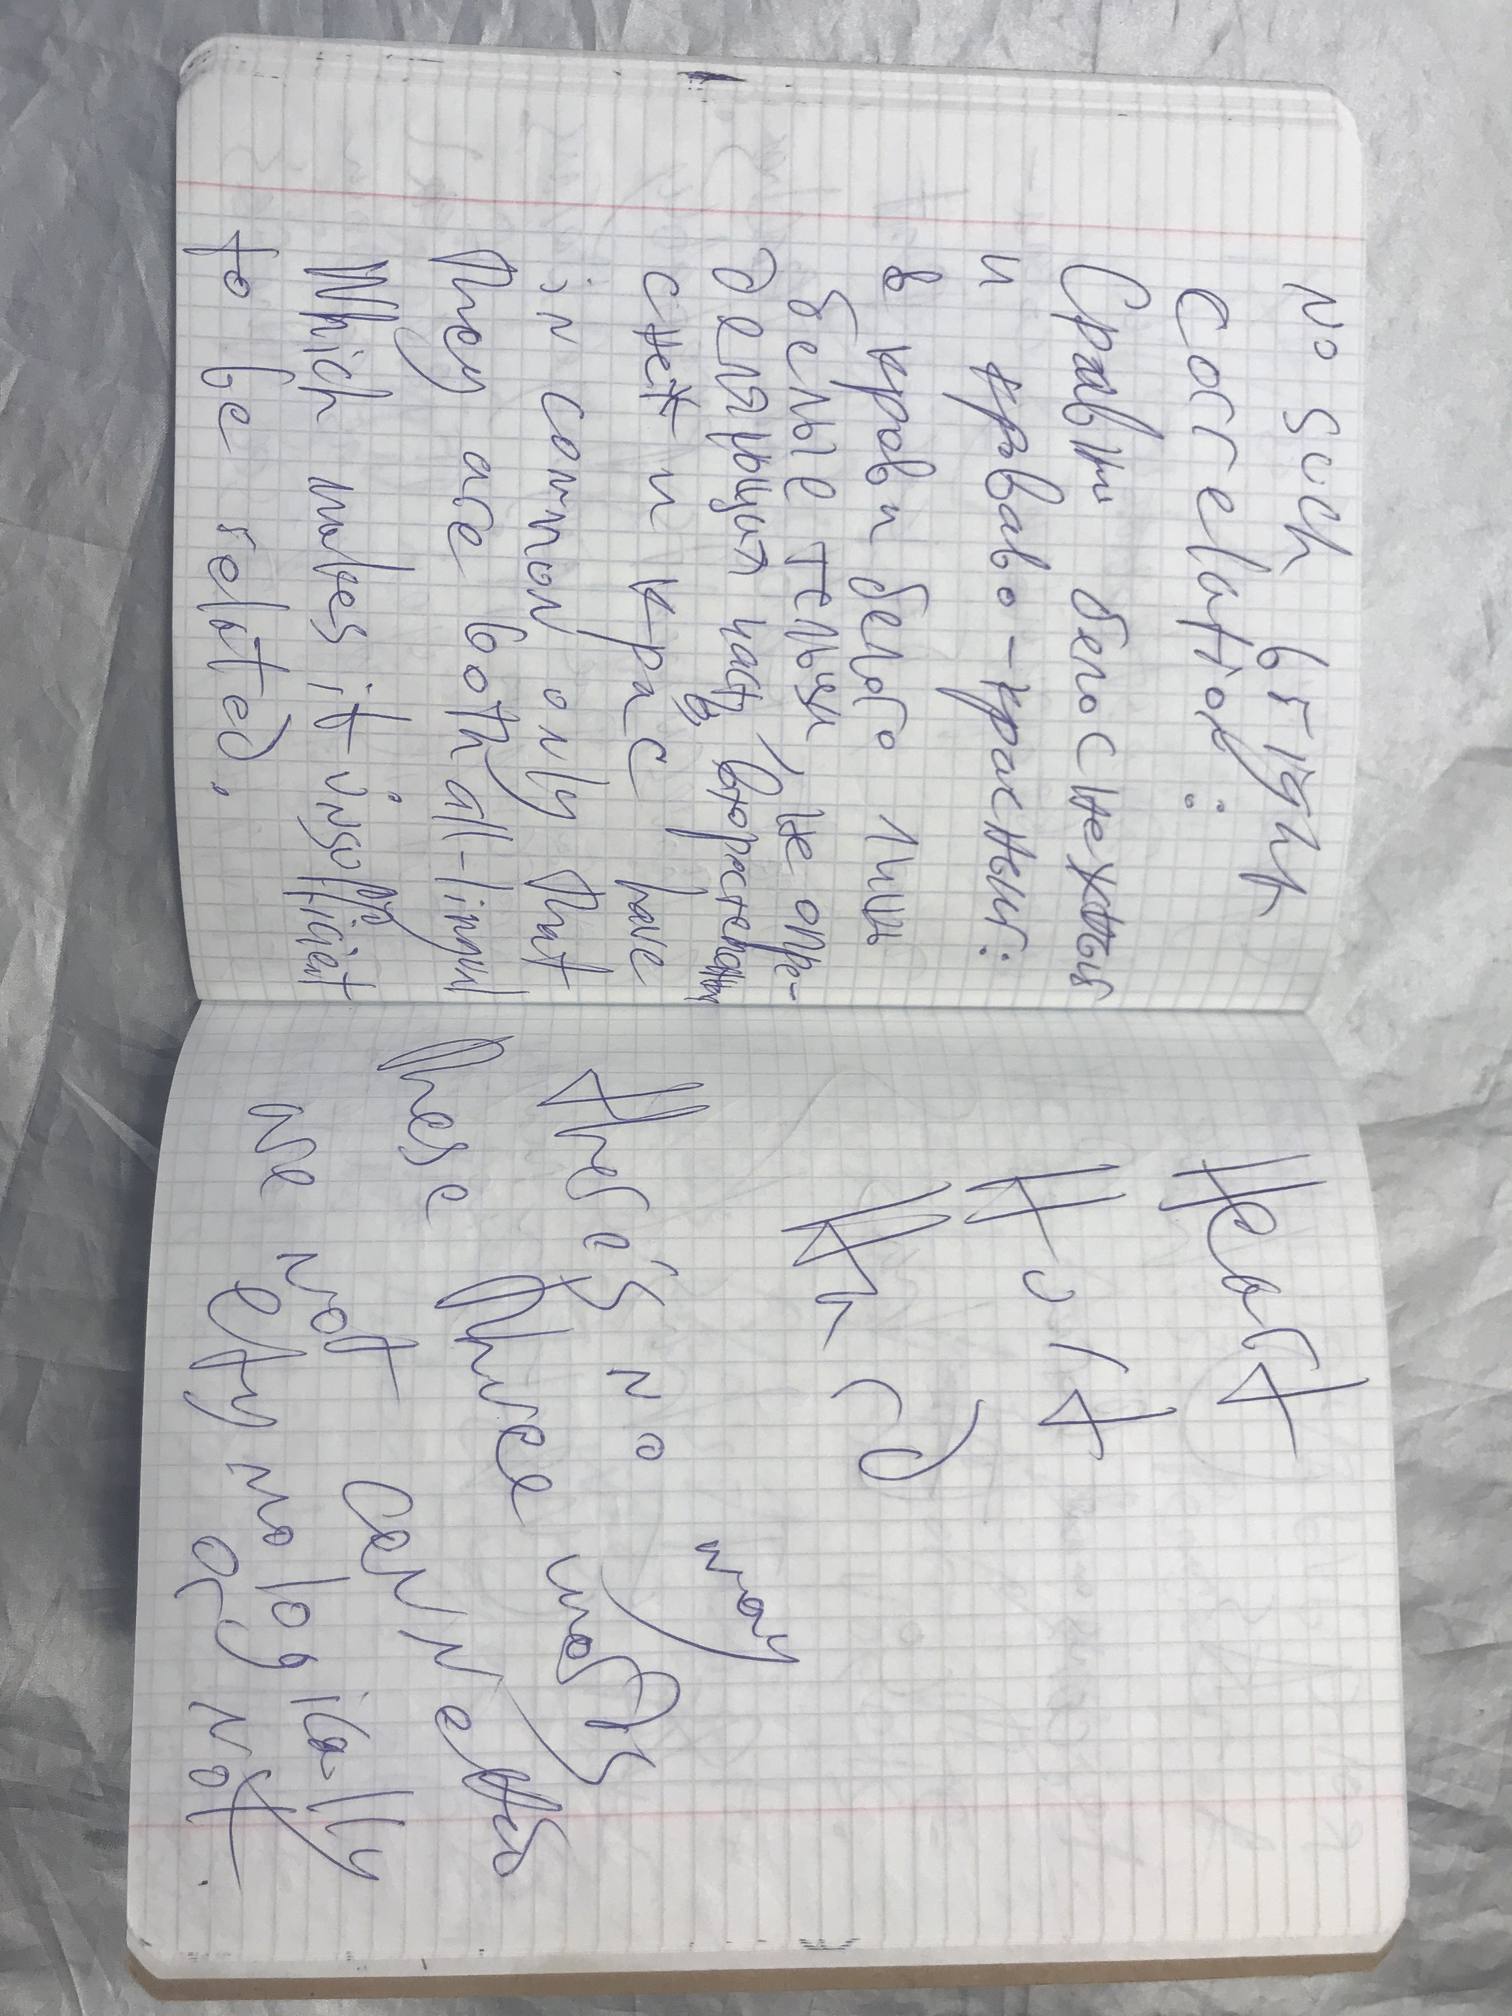 No such bright
correlation:
Сравни белоснежный
и кроваво-красный:
в крови белого лишь
белые тельца, не опре-
деляющая часть, второстепенны
снеж и крас have
in common only that
They are both all-lingual
Which makes it insufficient
to be related.
Heart
Hurt
Hard
There's no way
these three words
are not connected
etymologically
or not.